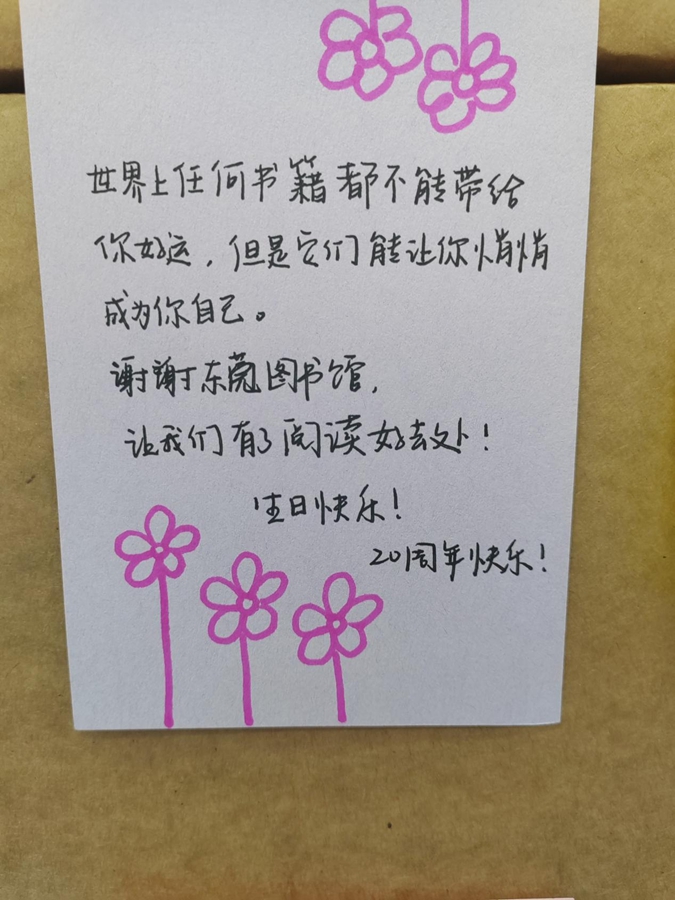 世界上任何书籍都不能带给
你好运，但是它们能让你悄悄
成为你自己。
谢谢东莞图书馆，
让我们有了阅读好去处！
生日快乐！
20周年快乐！